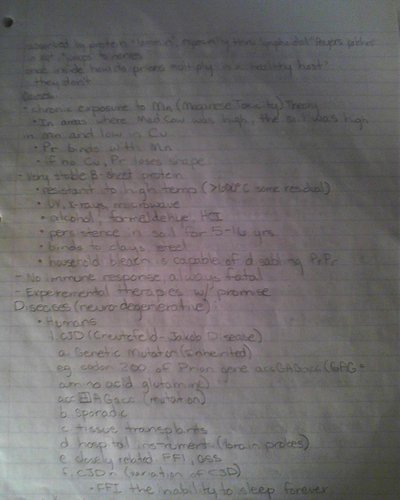 absorbed by protein "laminin", especially thru lymphoidal Peyers patches
in gut jumps to nerves
once inside how do prions multiply in a healthy host?
they don't
- chronic exposure to Mn (Maganese Toxicity) Theory
• In areas where Mad Cow was high, the soil was high
in Mn and low in Cu
• Pr binds with Mn
• if no Cu, Pr loses shape
- Very stable β-sheet protein
• resistant to high temp (>600°C some residual)
• UV, X-rays, microwave
• alcohol, formeldehye, HCl
• persistence in soil for 5-16 yrs
• binds to clays, steel
• household bleach is capable of disabling PrPr
- No immune response, always fatal
- Experemental therapies w/ promise
Diseases (neurodegenerative):
• Humans
1. CJD (Creutzfeld-Jakob Disease)
a. Genetic Mutation (inherited)
eg codon 200 of Prion gene accGAGacc (GAG =
amino acid glutamine)
acc AAGacc (mutation)
b. Sporadic
c. tissue transplants
d. hospital instrument (brain probes)
e. closely related FFI, GSS
f. CJD (variation of CJD)
• FFI the inability to sleep forever